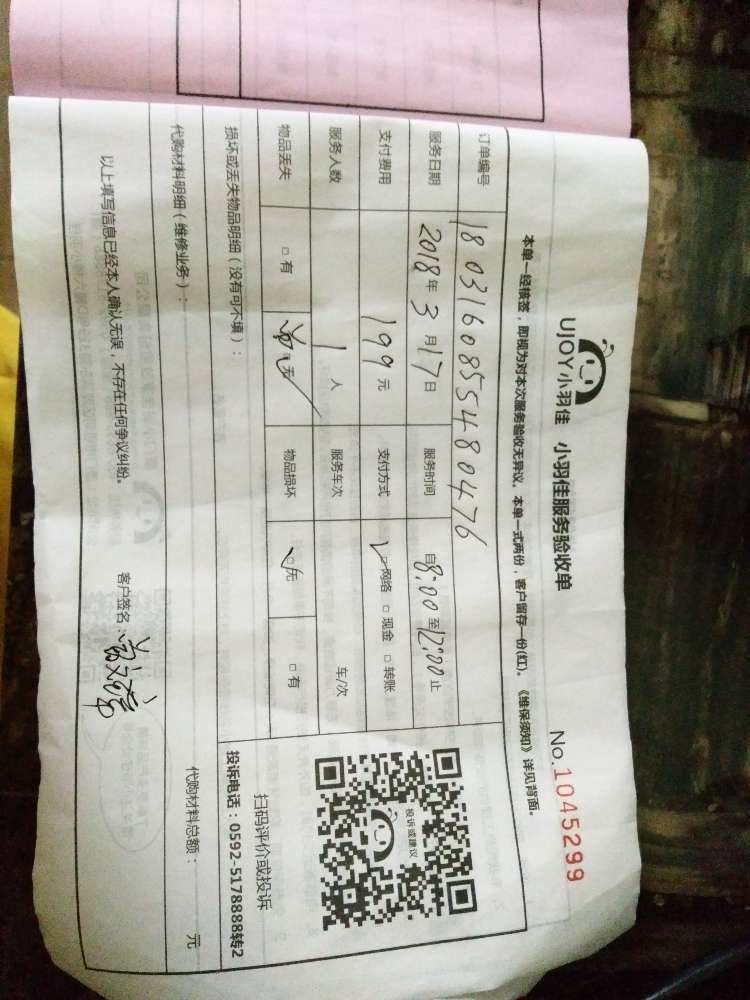 UJOY小羽佳 小羽佳服务验收单
No.1045299
本单一经核签，即视为对本次服务验收无异议。本单一式两份，客户留存一份(红)。《维保须知》详见背面。
订单编号 1803160855480476
服务日期 2018年3月17日 服务时间 自8:00至12:00止
支付费用 199元 支付方式 □网络 □现金 □转账
服务人数 1人 服务车次 车/次
物品丢失 □有 □无 物品损坏 □无 □有
损坏或丢失物品明细（没有可不填）：
投诉或建议
扫码评价或投诉
投诉电话：0592-5178888转2
代购材料明细（维修业务）：
代购材料总额： 元
以上填写信息已经本人确认无误，不存在任何争议纠纷。
客户签名：